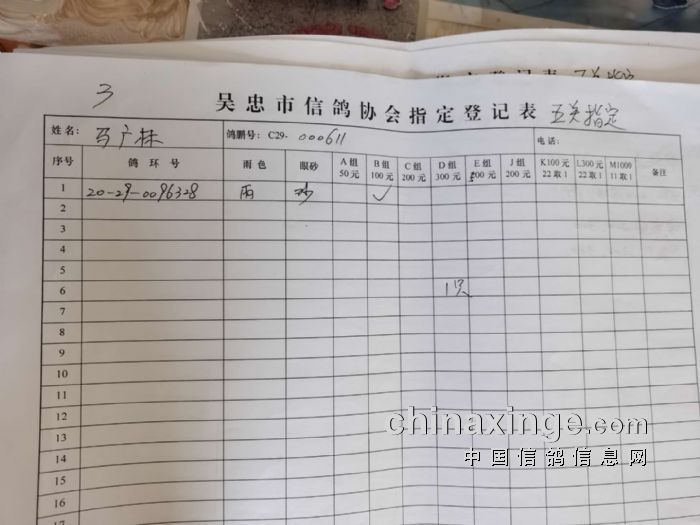 3
吴忠市信鸽协会指定登记表 五关指定
姓名: 马广林 鸽棚号: C29- 000611 电话:
序号 鸽环号 雨色 眼砂 A组 50元 B组 100元 C组 200元 D组 300元 E组 500元 J组 200元 K100元 22取1 L300元 22取1 M1000 11取1 备注
1 20-29-0096328 雨 砂 ✓
2
3
4
5
6 1只
7
8
9
10
11
12
13
14
15
16
17
chinaxinge.com
中国信鸽信息网